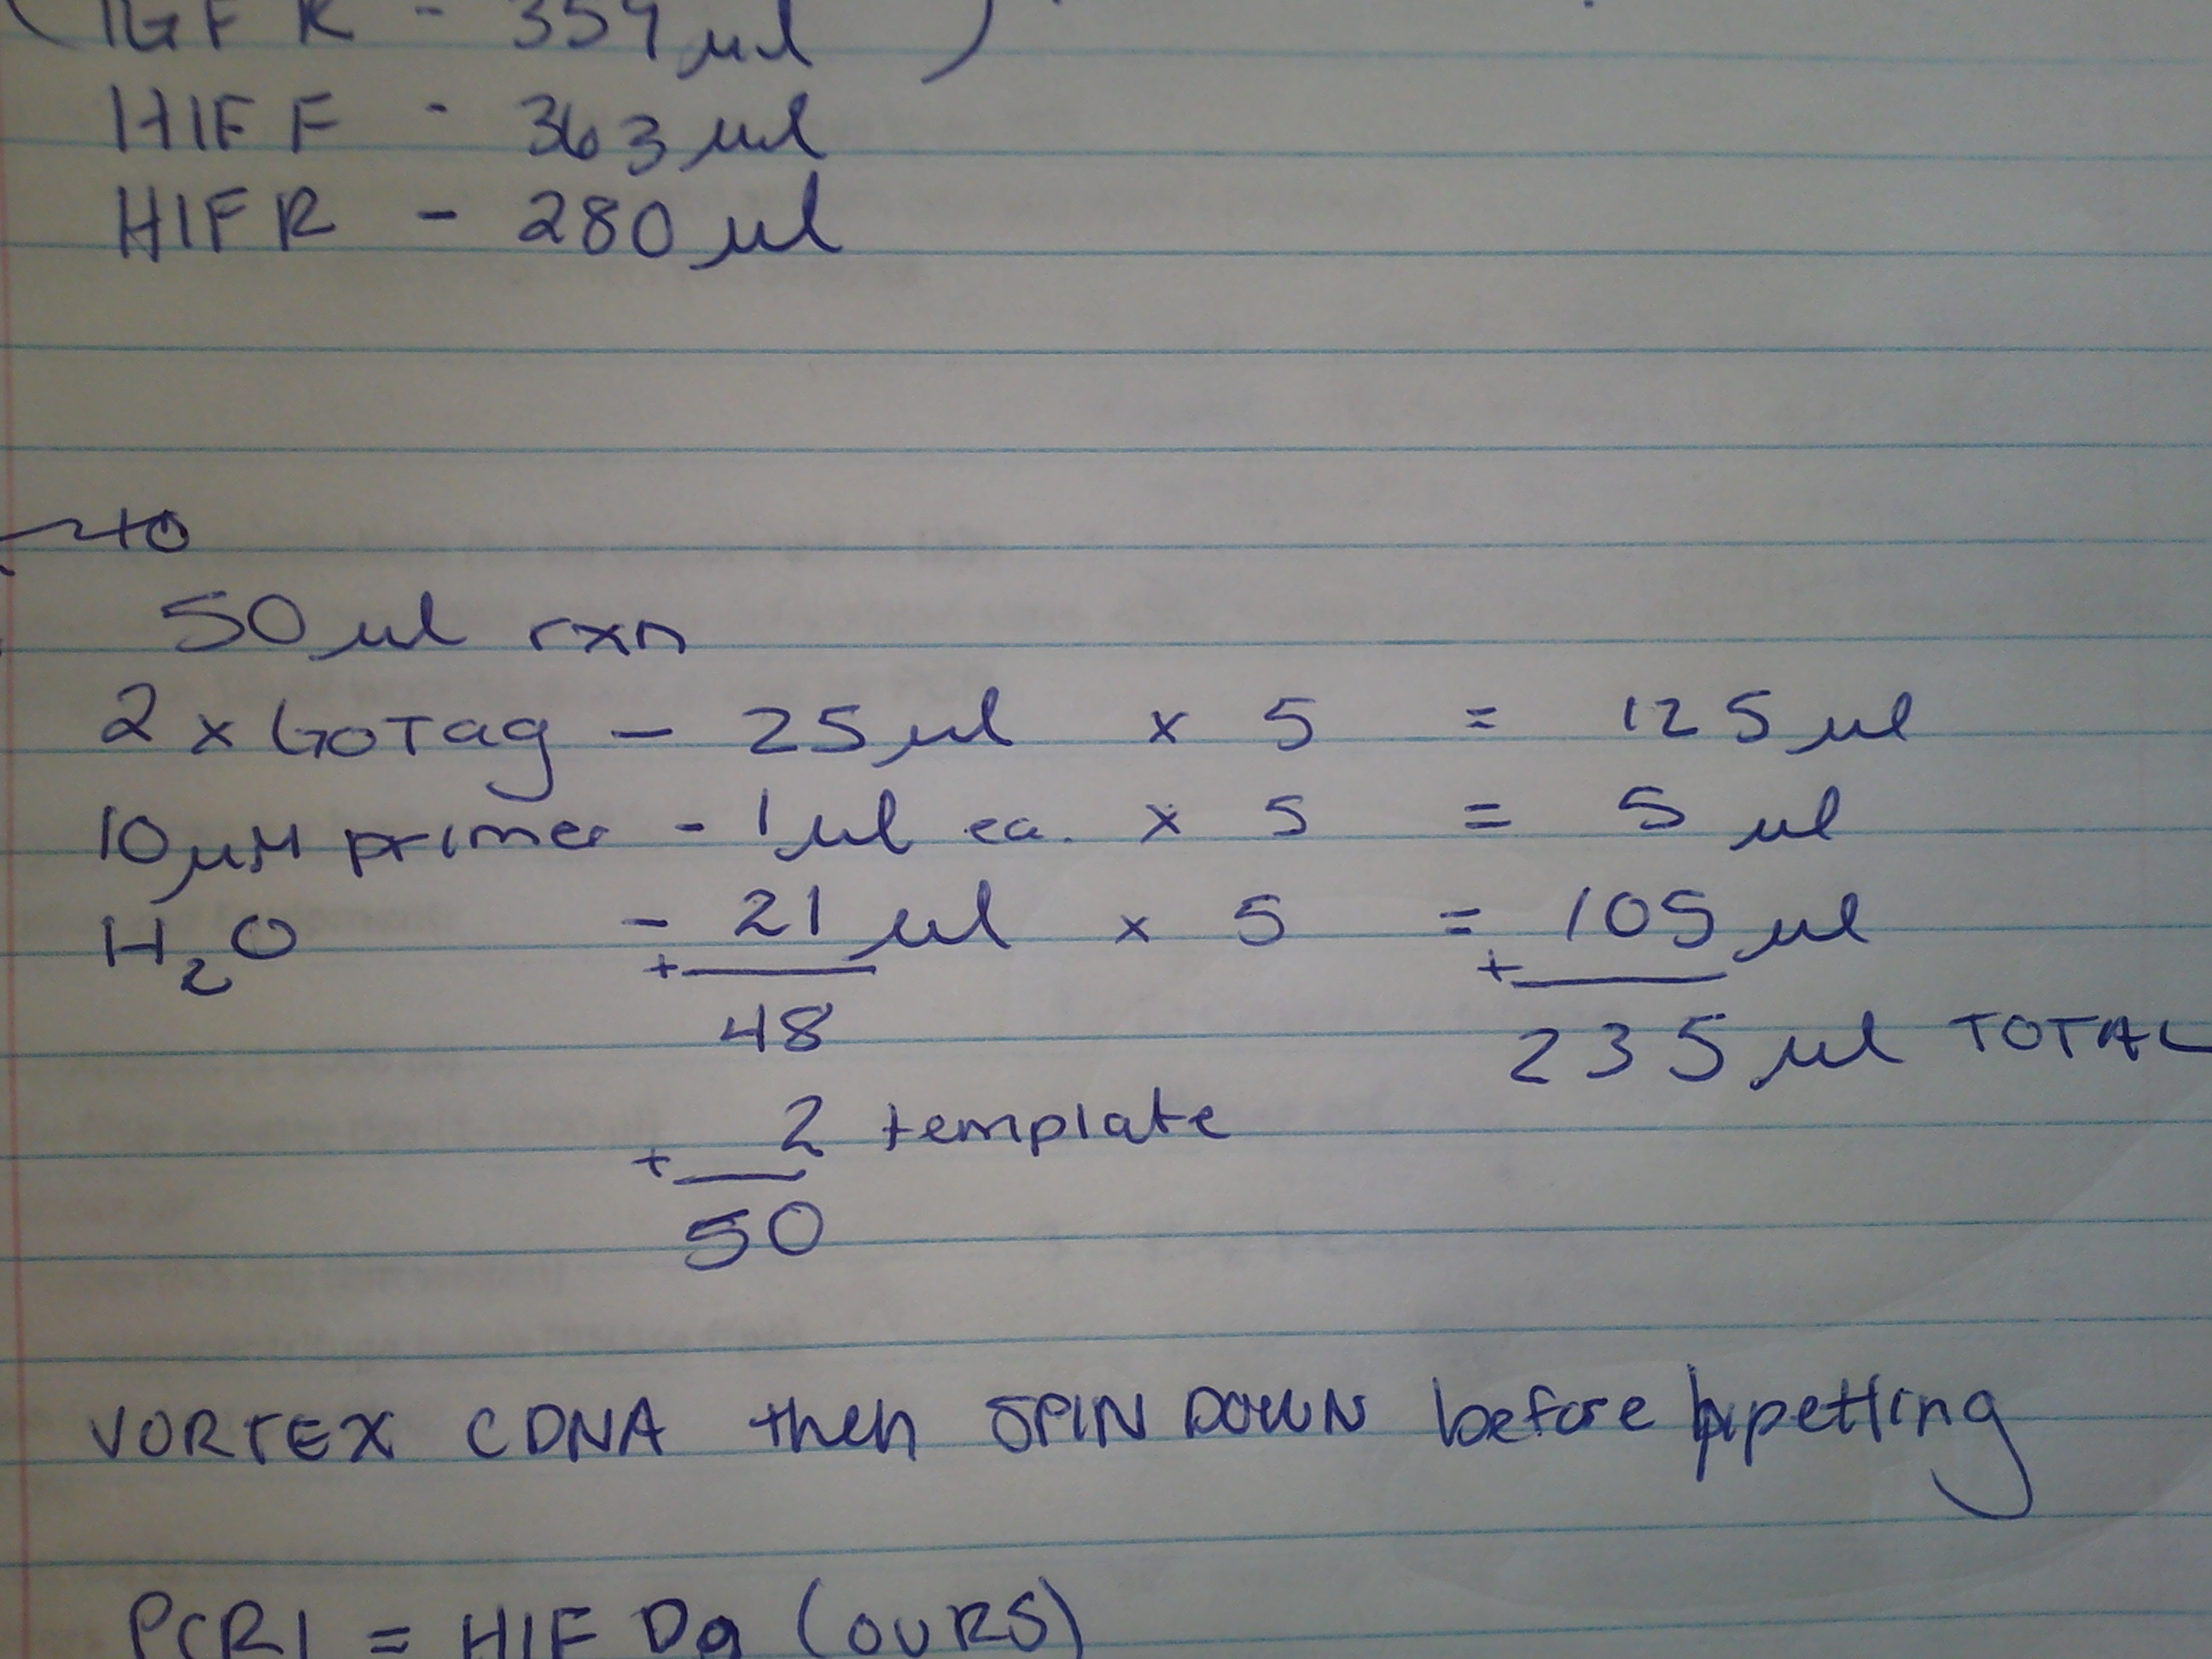 (IGF R - 359 µl )
HIF F - 363 µl
HIF R - 280 µl
50 µl rxn
2 x GoTaq - 25 µl x 5 = 125 µl
10 µM primer - 1 µl ea. x 5 = 5 µl
H2O - 21 µl x 5 = 105 µl
+ +
48 235 µl TOTAL
2 template
+
50
VORTEX CDNA then SPIN DOWN before pipetting
PCR1 = HIF Dg (OURS)